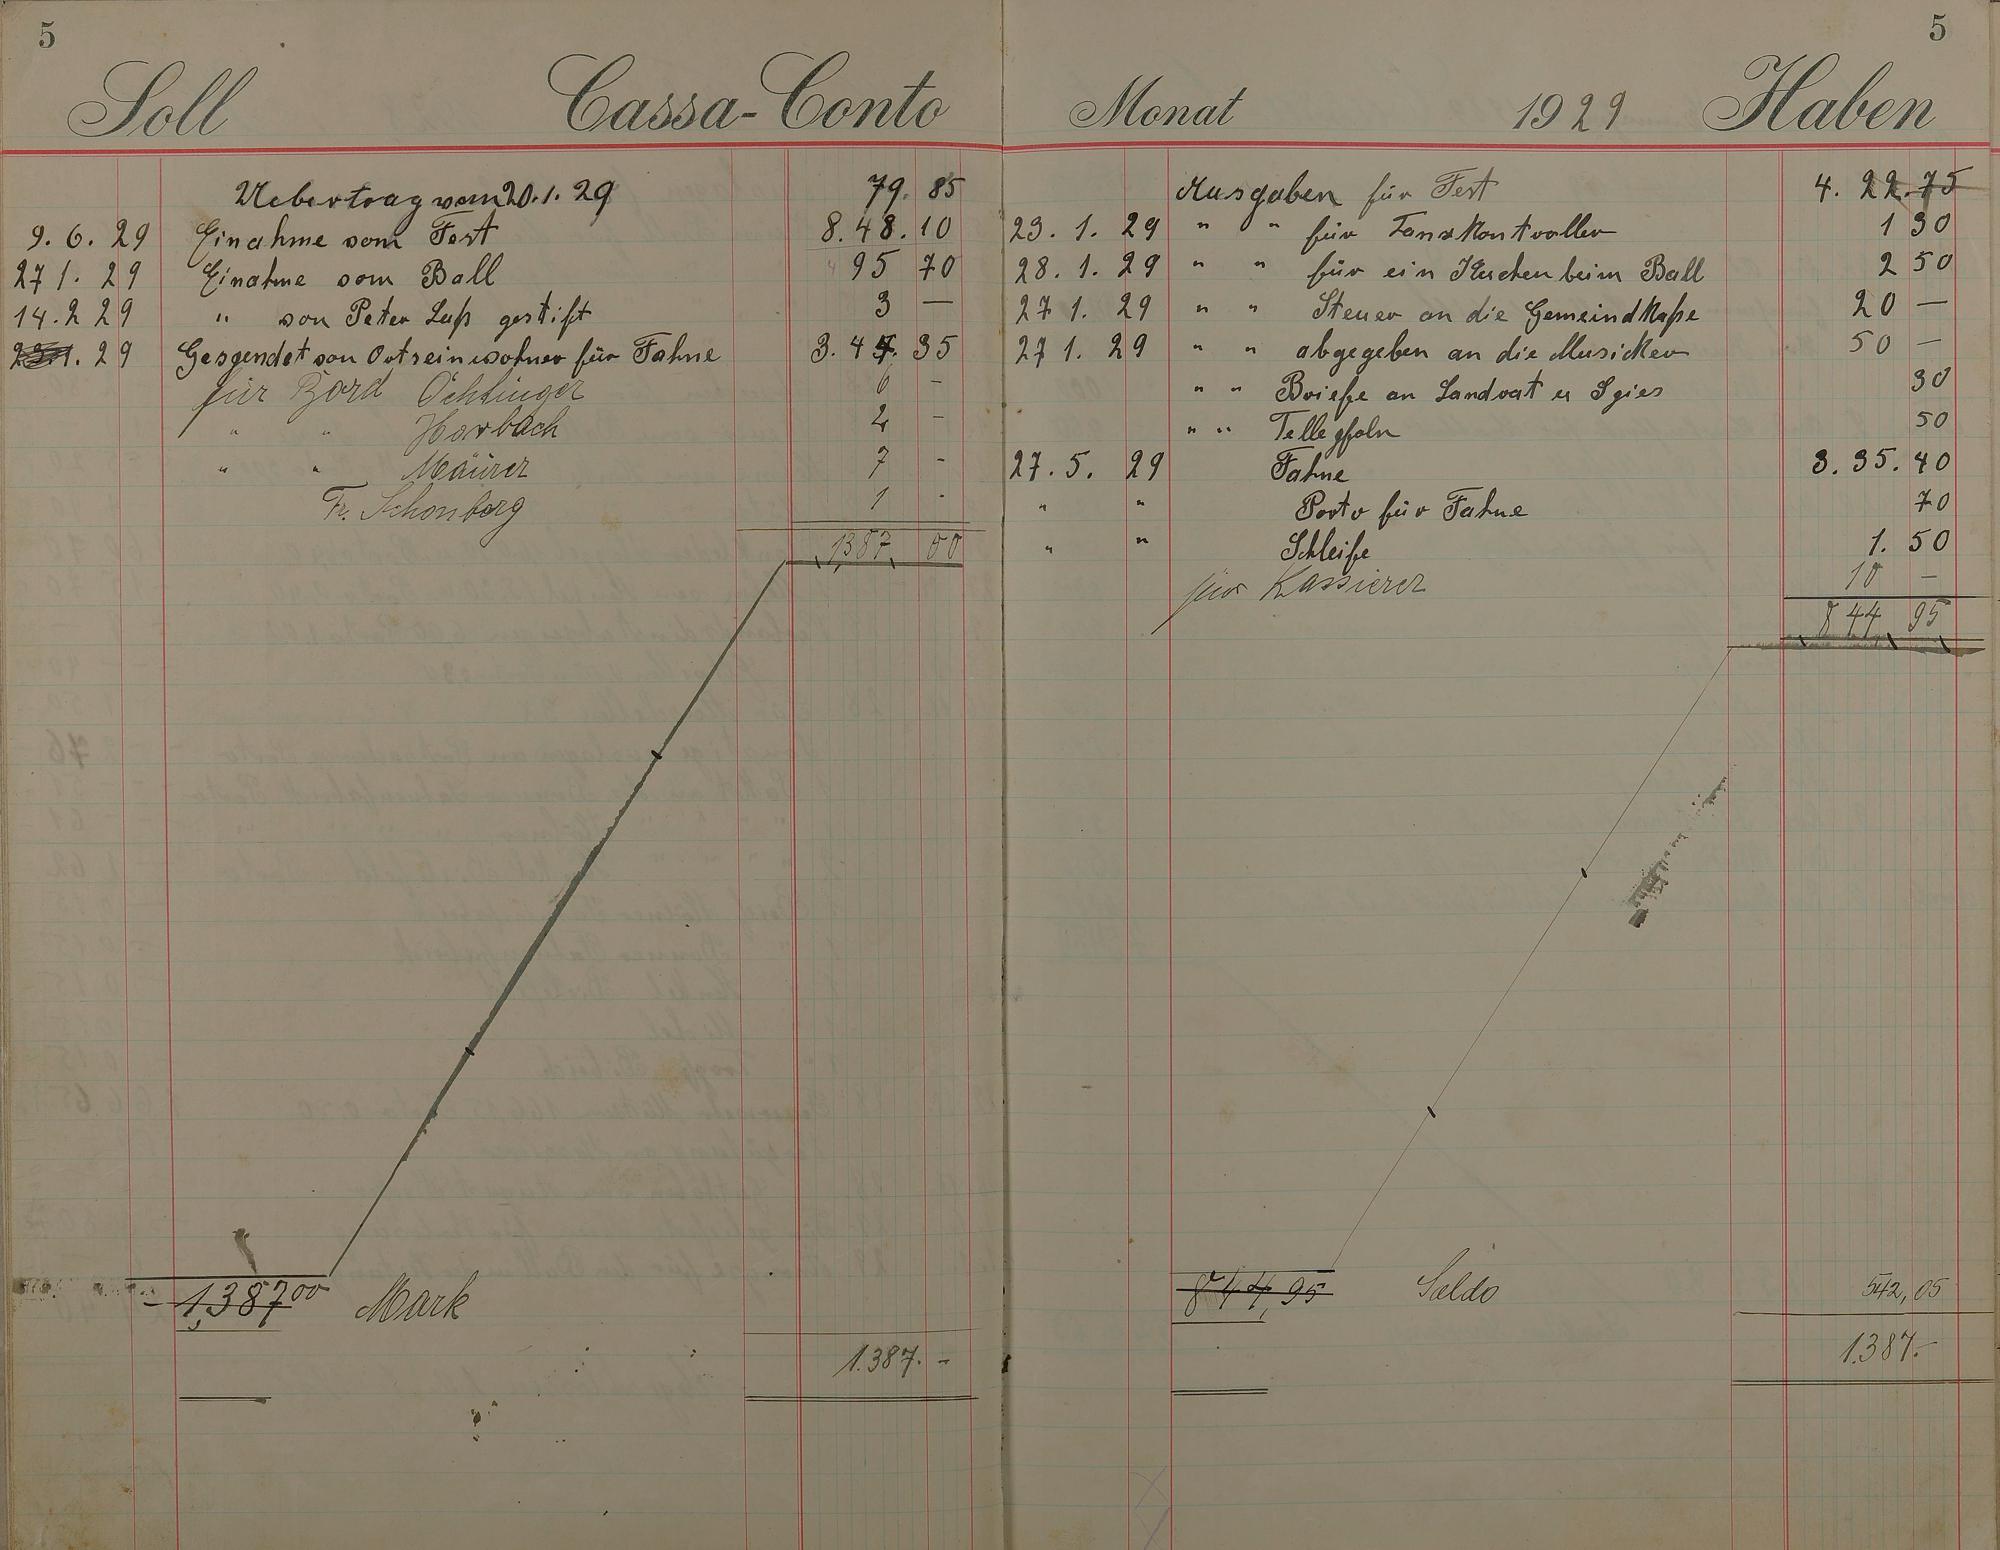 5
Soll Cassa-Conto
Uebertrag vom 20.1.29 79. 85
9. 6. 29 Einahme vom Fest 8.48.10
27 1. 29 Einahme vom Ball 95 70
14. 2 29 " von Peter Laß gestift 3 —
1. 29 Gesgendet von Ortseinwohner für Fahne 3.47. 35
für Bord Öchtinger 6 -
" " Horbach 2 -
" " Mäurer 7 -
Fr. Schonberg 1 -
1387, 00
1,387 00 Mark
1.387. -
5
Monat 1929 Haben
Ausgaben für Fest 4. 22.75
23. 1. 29 " " für Tanzkontroller 1 30
28. 1. 29 " " für ein Kuchen beim Ball 2 50
27 1. 29 " " Steuer an die Gemeindkaße 20 —
27 1. 29 " " abgegeben an die Musicker 50 —
" " Briefe an Landrat u Spies 30
" " Tellegfoln 50
27. 5. 29 Fahne 3. 35. 40
" " Porto für Fahne 70
" " Schleife 1. 50
für Kassierer 10 —
844, 95
844,95 Saldo 542,05
1.387.-